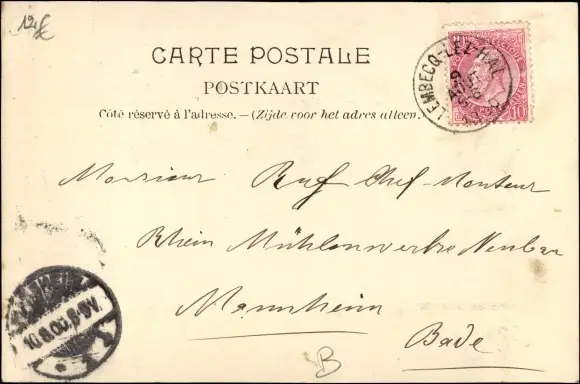 12€
CARTE POSTALE
POSTKAART
Côté réservé à l'adresse. — (Zijde voor het adres alleen.)
LEMBECQ-LEZ-HAL
10
Monsieur Ruf Chef-Monteur
Rhein Mühlenwerke Neubau
Mannheim
Bade
10.8.00.8-9V.
B